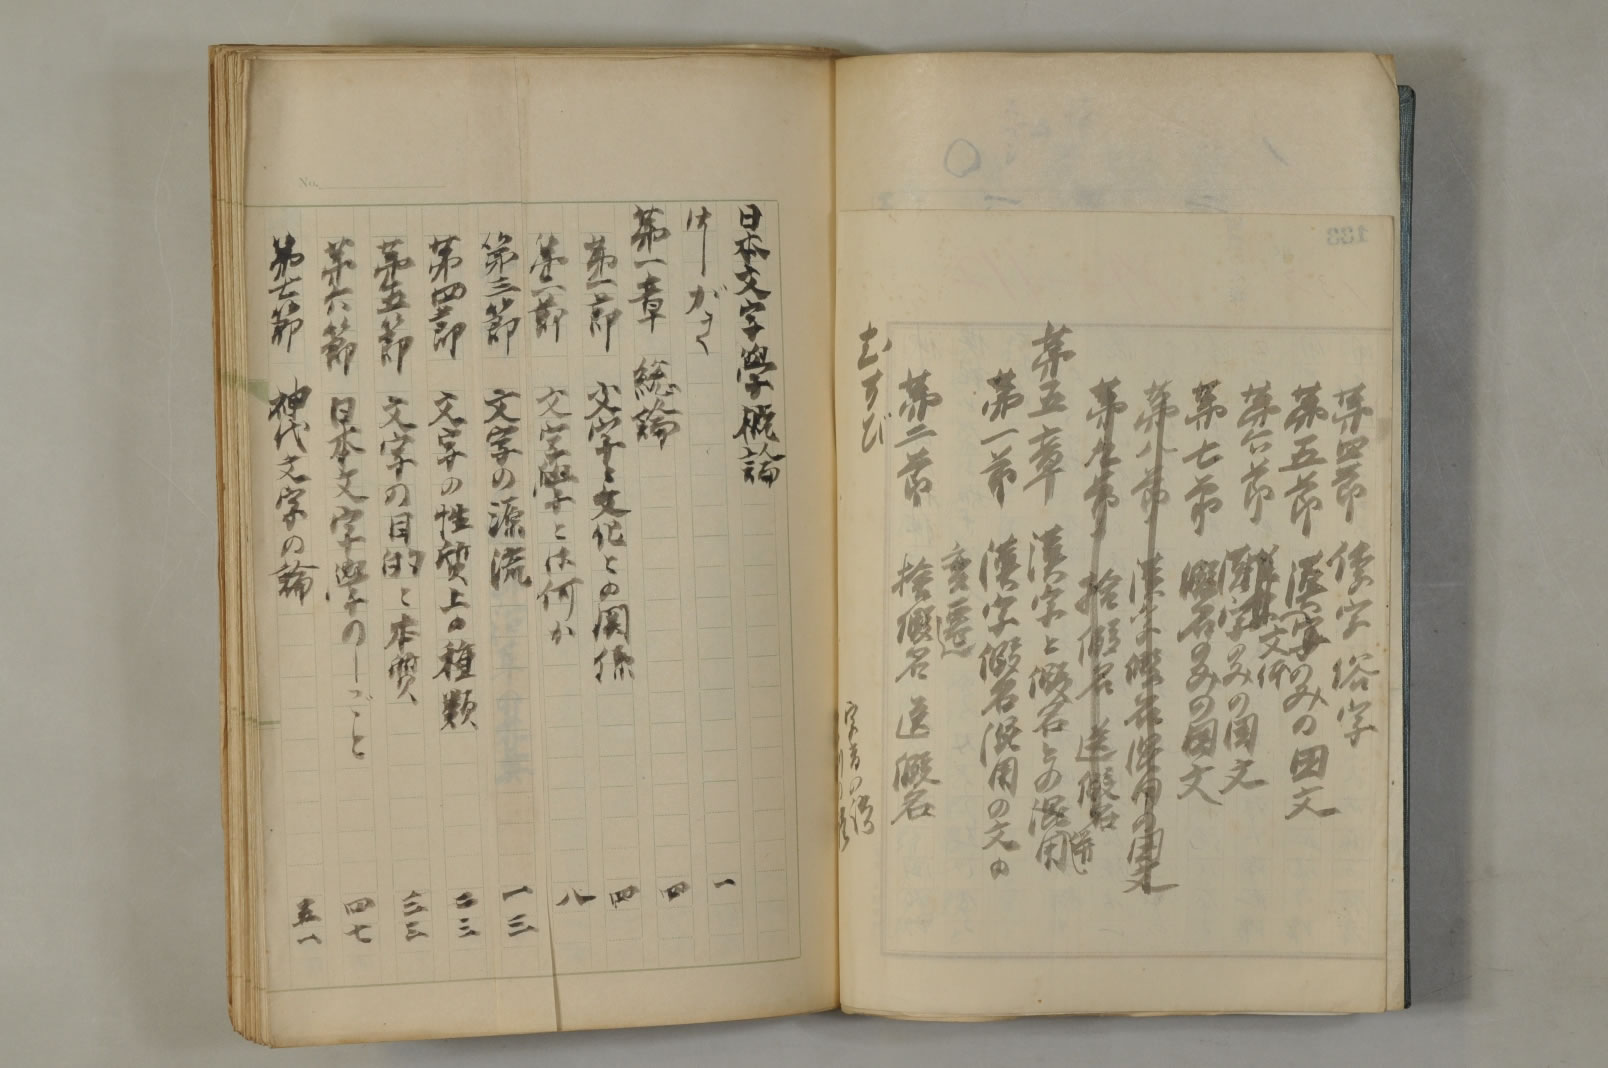 第四節 倭字 俗字
第五節 漢字のみの国文
第六節 漢字のみの国文
准漢文体
第七節 假名のみの国文
第八節 漢字假名混用の国文
第九節 捨假名 送假名
第五章 漢字と假名との混用
第一節 漢字假名混用の文の
変遷
第二節 捨假名 送假名
むすび
字音の
日本文字學概論
はしがき 一
第一章 総論 四
第一節 文字と文化との関係 四
第二節 文字學とは何か 八
第三節 文字の源流 一三
第四節 文字の性質上の種類 二三
第五節 文字の目的と本質 三三
第六節 日本文字學のしごと 四七
第七節 神代文字の論 五一
No.